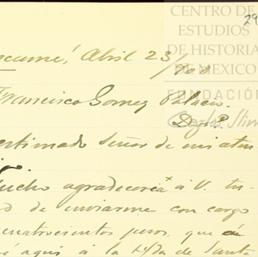 CENTRO DE
ESTUDIOS
DE HISTORIA
DE MEXICO
FUNDACIÓN
Carlos Slim
29
Abril 23/900
Francisco Gomez Palacio.
Dgo.
estimado Señor de mi aten
Mucho agradeceré á V. tu
d de enviarme con cargo
cuatrocientos pesos, que á
é aquí á la Hda de Santa